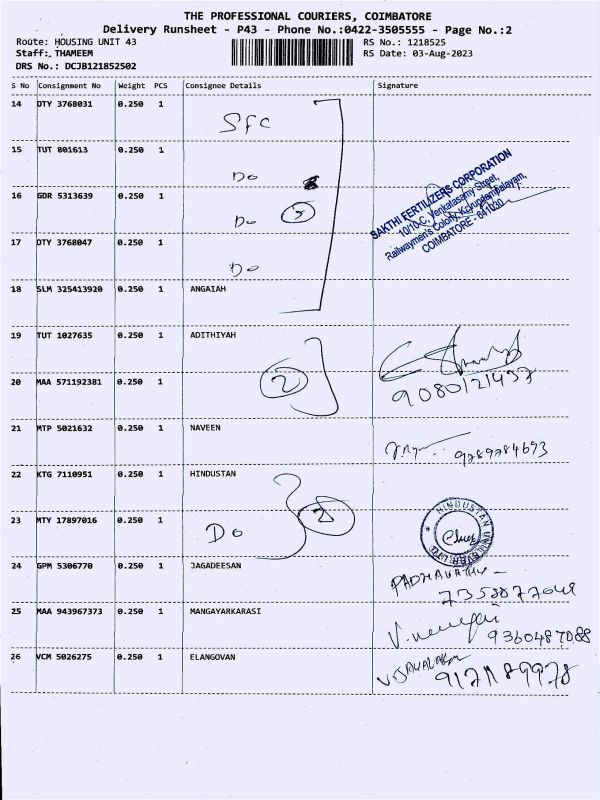 THE PROFESSIONAL COURIERS, COIMBATORE
Delivery Runsheet - P43 - Phone No.:0422-3505555 - Page No.:2
Route: HOUSING UNIT 43 RS No.: 1218525
Staff: THAMEEM RS Date: 03-Aug-2023
DRS No.: DCJB121852502
S No Consignment No Weight PCS Consignee Details Signature
14 DTY 3768031 0.250 1 SFC
15 TUT 801613 0.250 1 Do
16 GDR 5313639 0.250 1 Do 5
17 DTY 3768047 0.250 1 Do
SAKTHI FERTILIZERS CORPORATION
10/10-C, Venkatasamy Street,
Railwaymen's Colony, Kavundampalayam,
COIMBATORE - 641030
18 SLM 325413920 0.250 1 ANGAIAH
19 TUT 1027635 0.250 1 ADITHIYAH
20 MAA 571192381 0.250 1 2 9080121437
21 MTP 5021632 0.250 1 NAVEEN 9789784693
22 KTG 7110951 0.250 1 HINDUSTAN
23 MTY 17897016 0.250 1 Do 2
HINDUSTAN
24 GPM 5306770 0.250 1 JAGADEESAN PADMAVATHY
7358077048
25 MAA 943967373 0.250 1 MANGAYARKARASI 9360487088
26 VCM 5026275 0.250 1 ELANGOVAN